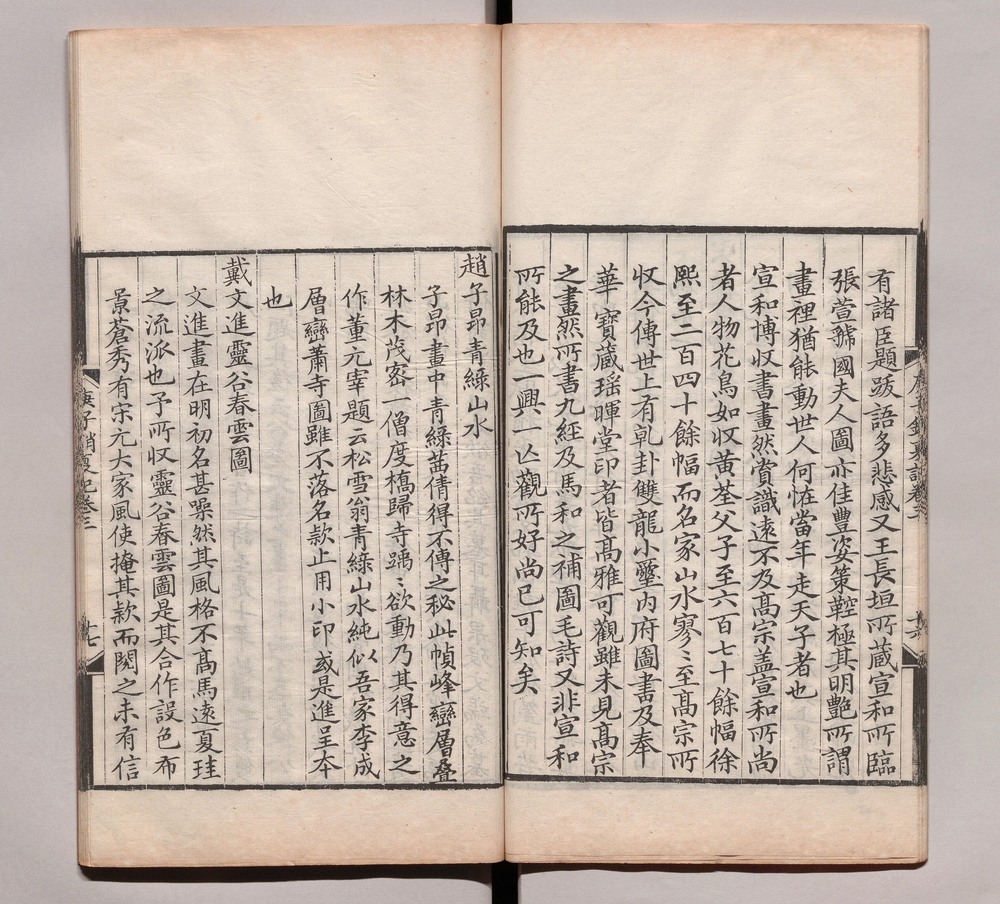 有諸臣題跋語多悲感又王長垣所蔵宣和所臨
張萱虢國夫人圖亦佳豐姿策鞚極其明艷所謂
畫裡猶能動世人何恠當年走天子者也
宣和博収書畫然賞識遠不及髙宗盖宣和所尚
者人物花鳥如収黄荃父子至六百七十餘幅徐
熙至二百四十餘幅而名家山水寥〻至髙宗所
収今傳世上有乹卦雙龍小璽内府圖書及奉
華寶蔵瑶暉堂印者皆髙雅可觀雖未見髙宗
之畫然所書九經及馬和之補圖毛詩又非宣和
所能及也一興一亾觀所好尚已可知矣
趙子昂青綠山水
子昂畫中青綠茁倩得不傳之秘此幀峰巒層叠
林木茂宻一僧度橋歸寺踽〻欲動乃其得意之
作董元宰題云松雪翁青綠山水純似吾家李成
層巒蕭寺圖雖不落名款止用小印或是進呈本
也
戴文進靈谷春雲圖
文進畫在明初名甚噪然其風格不髙馬遠夏珪
之流派也予所収靈谷春雲圖是其合作設色布
景蒼秀有宋元大家風使掩其款而閱之未有信
庚子銷夏記卷三
十七